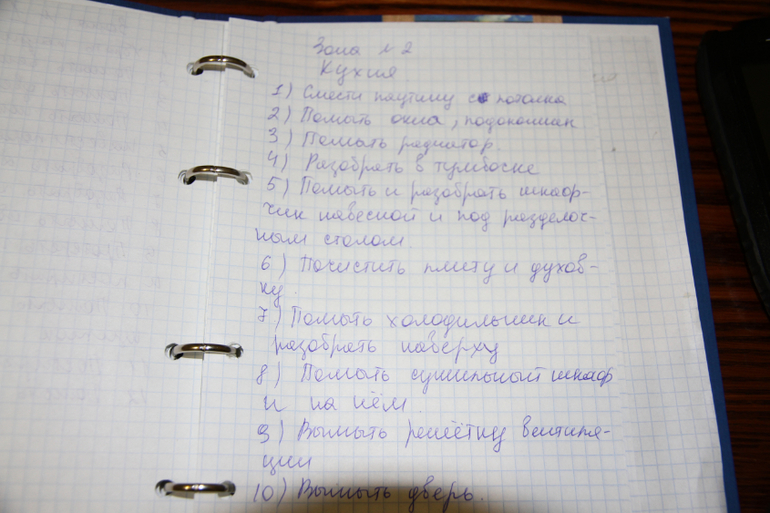 Зона № 2
Кухня
1) Смести паутину с потолка
2) Помыть окна, подоконник
3) Помыть радиатор.
4) Разобрать в тумбочке
5) Помыть и разобрать шкаф-
чик навесной и под разделоч-
ным столом.
6) Почистить плиту и духов-
ку.
7) Помыть холодильник и
разобрать наверху
8) Помыть сушильный шкаф
и на нём
9) Вымыть решётку вентиля-
ции
10) Вымыть дверь.